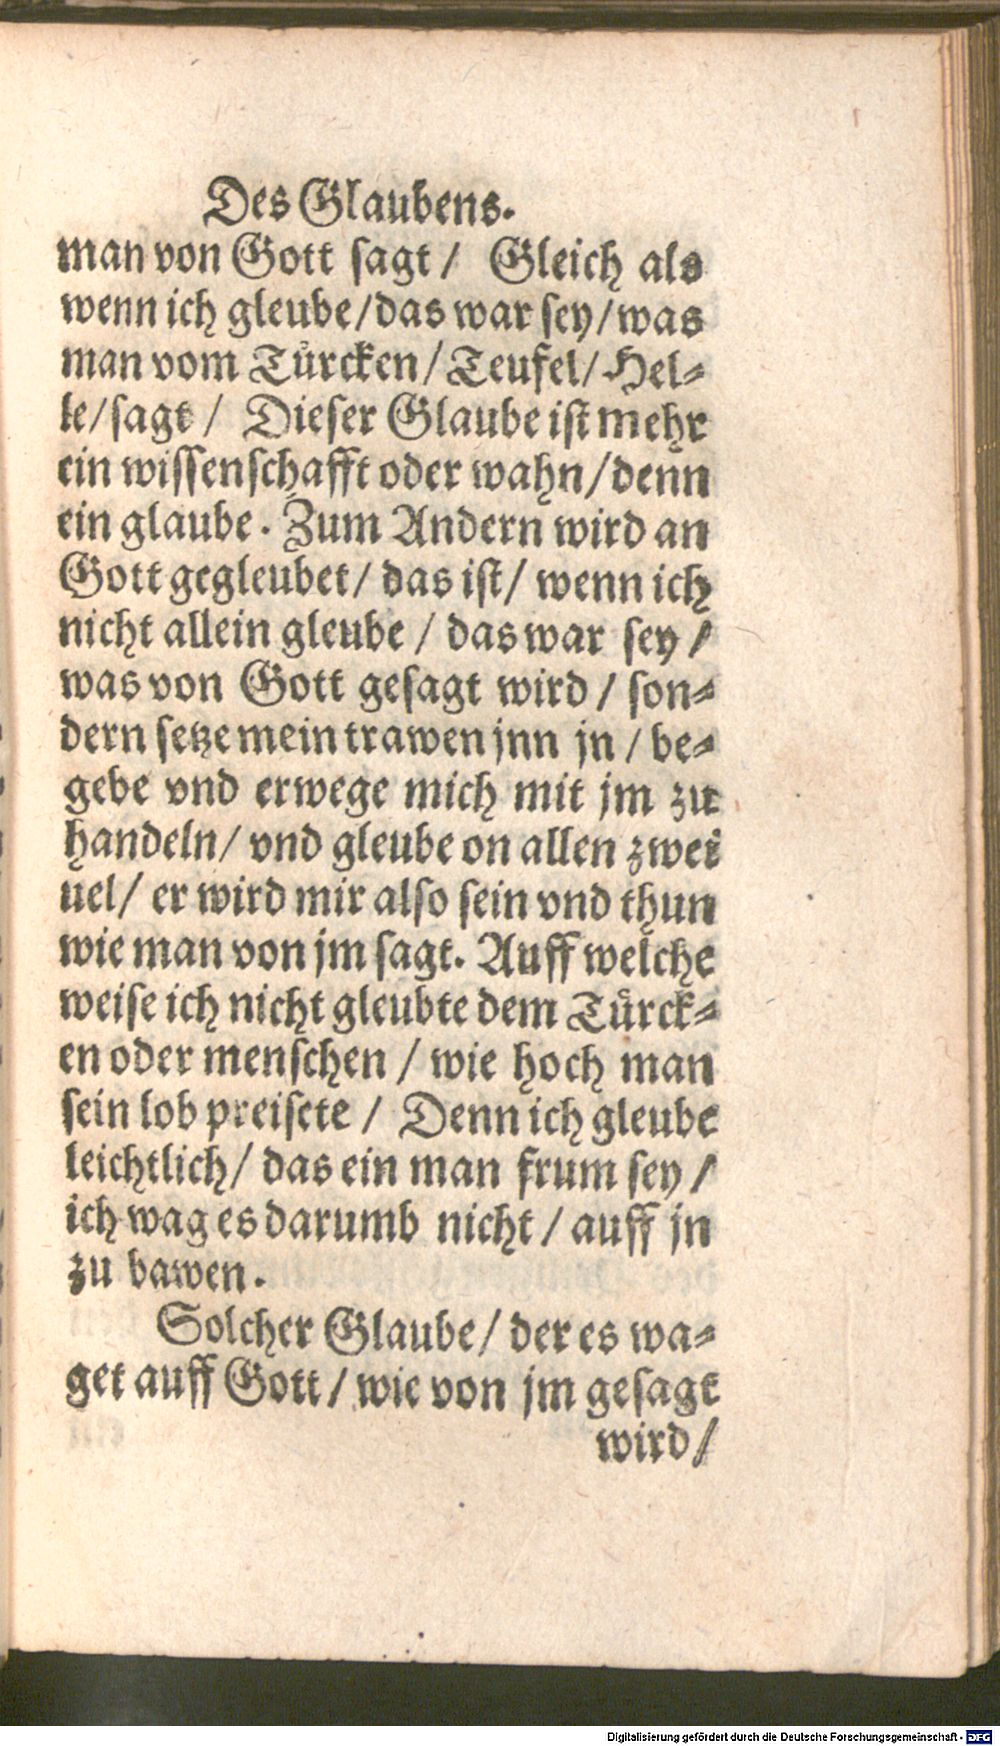 Des Glaubens.
man von Gott sagt / Gleich als
wenn ich gleube/das war sey/was
man vom Tuͤrcken/Teufel/Hel-
le/sagt / Dieser Glaube ist mehr
ein wissenschafft oder wahn/denn
ein glaube. Zum Andern wird an
Gott gegleubet/ das ist/ wenn ich
nicht allein gleube / das war sey /
was von Gott gesagt wird / son-
dern setze mein trawen jnn jn / be-
gebe vnd erwege mich mit jm zu
handeln/ vnd gleube on allen zwei
uel/ er wird mir also sein vnd thun
wie man von jm sagt. Auff welche
weise ich nicht gleubte dem Tuͤrck-
en oder menschen / wie hoch man
sein lob preisete / Denn ich gleube
leichtlich/ das ein man frum sey /
ich wag es darumb nicht / auff jn
zu bawen.
Solcher Glaube/ der es wa-
get auff Gott/ wie von jm gesagt
wird/
Digitalisierung gefördert durch die Deutsche Forschungsgemeinschaft - DFG